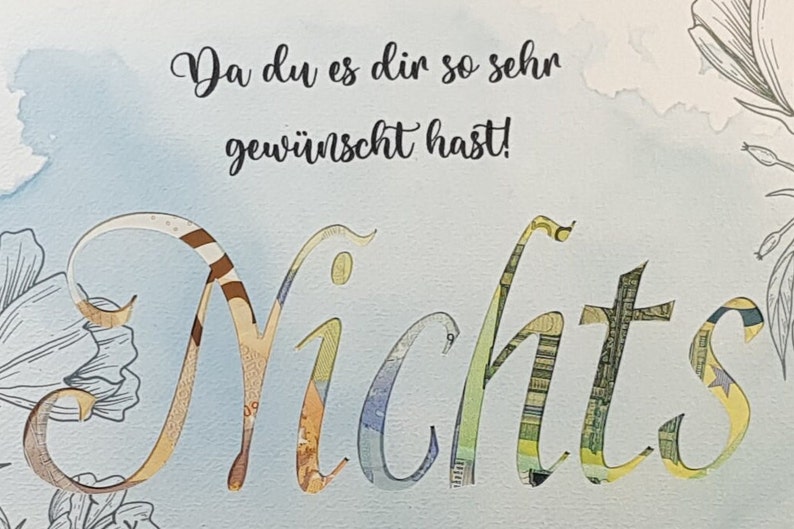 Da du es dir so sehr
gewünscht hast!
Nichts